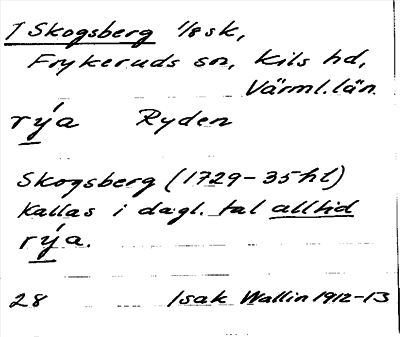 T Skogsberg 1/8 sk,
Frykeruds sn, Kils hd,
Värml. län
rýa Ryden
Skogsberg (1729-35 hl)
Kallas i dagl. tal alltid
rýa.
28 Isak Wallin 1912-13